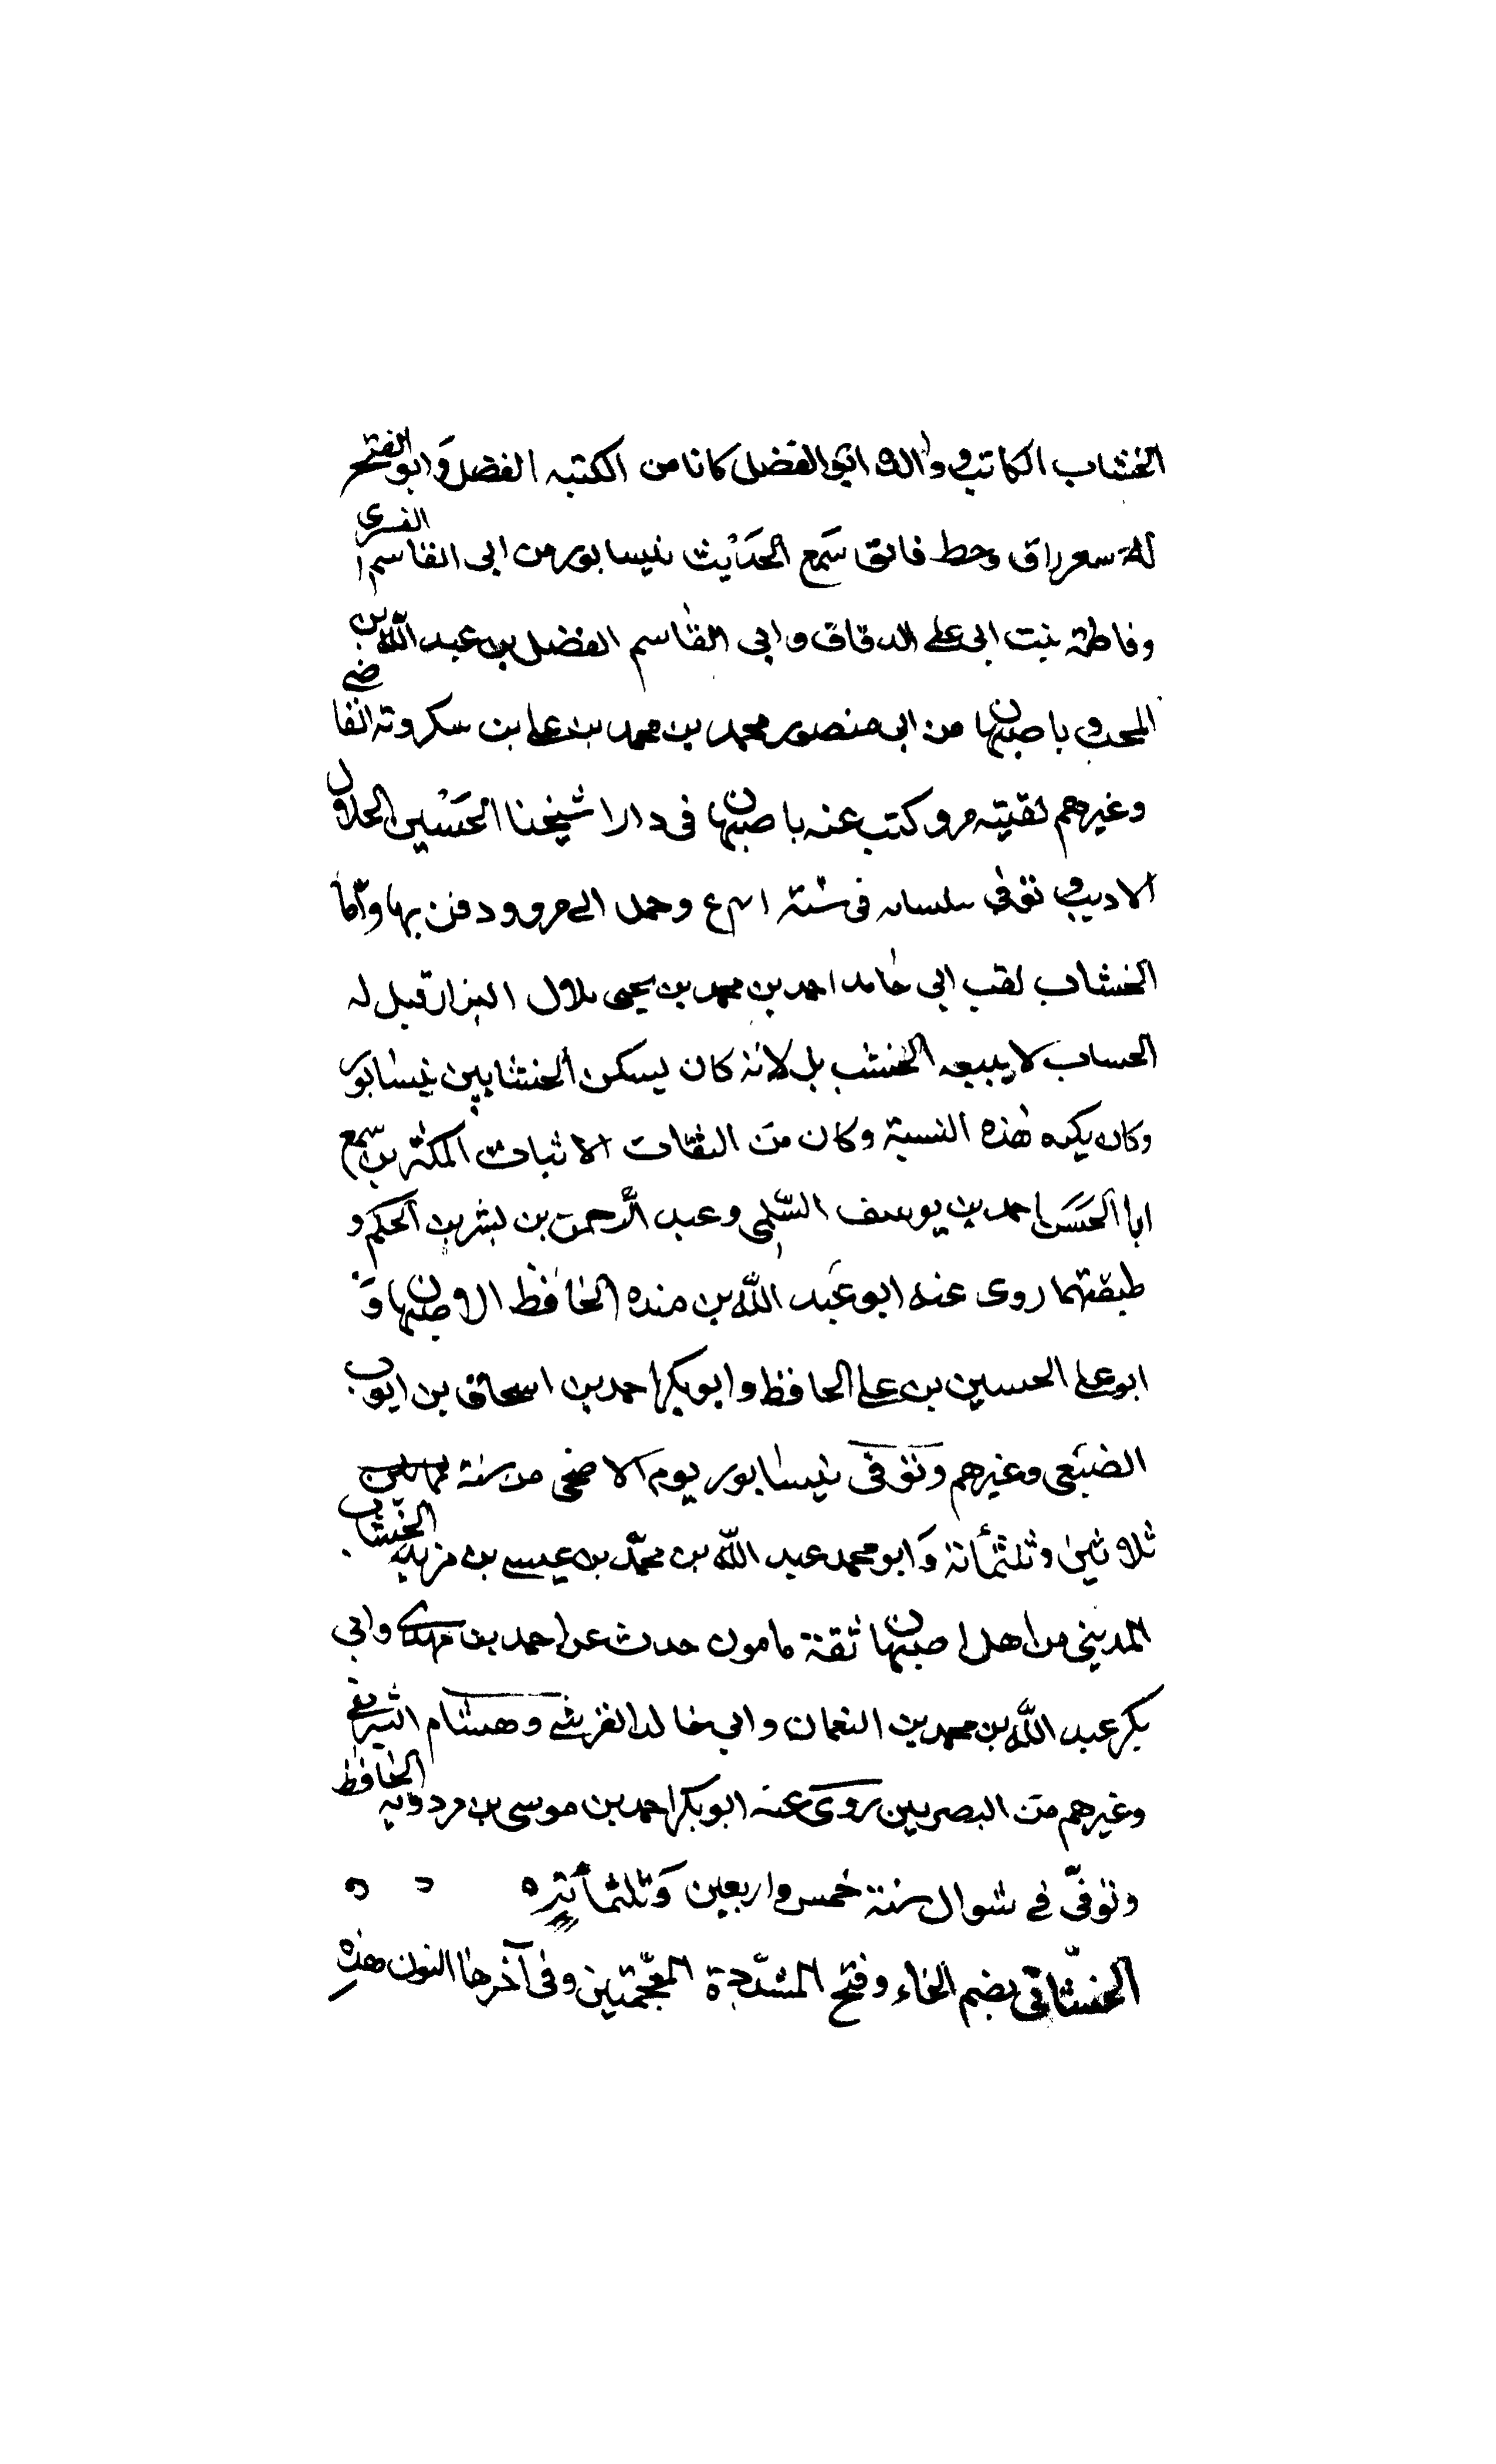 الخشاب الكاتب و والده ابى الفضل كانا من الكتبه الفضل وابو الفتح
له سعر راق وحط فائق سمع الحديث نيسابور من ابى القاسم القسرى
وفاطمة بنت ابى على الدقاق وابى القاسم الفضل بن عبد الله بن
المحب و باصبهان من ابى منصور محمد بن محمد بن على بن سكروته القاضى
وغيرهم لقيته مرو وكتب عنه باصبهان فى دار شيخنا الحسين الخلال
الاديب و توفى فى سنة وحمل الى مرو ودفن بها واما
الخشاب لقب ابى حامد احمد بن محمد بن يحيى بلال البزار قيل له
الحساب لا يبيعه الخشب بل لانه كان يسكن الخشابين نيسابور
وكان يكره هذه النسبة وكان من الثقات الاثبات المكثرين سمع
ابا الحسن احمد بن يوسف السلمى وعبد الرحمن بن بشر بن الحكم و
طبقتهما روى عنه ابو عبد الله بن منده الحافظ الاصبهان و
ابو على الحسين بن على الحافظ وابو بكر احمد بن اسحاق بن ايوب
الضبعى وغيرهم وتوفى نيسابور يوم الاضحى من سنة
ثلاثين وثلثمائة وابو محمد عبد الله بن محمد بن عيسى بن مزيد الخشاب
المدينى من اهل اصبهان ثقة مامون حدث عن احمد بن مهدى وابى
بكر عبد الله بن محمد بن النعمان وابى خالد القرشى وهشام
وغيرهم من البصريين روى عنه ابو بكر احمد بن موسى بن مردويه الحافظ
وتوفى فى شوال سنة خمس واربعين وثلثمائة
الخشانى بضم الخاء وفتح المشددة المعجمتين وفى آخرها النون هذه